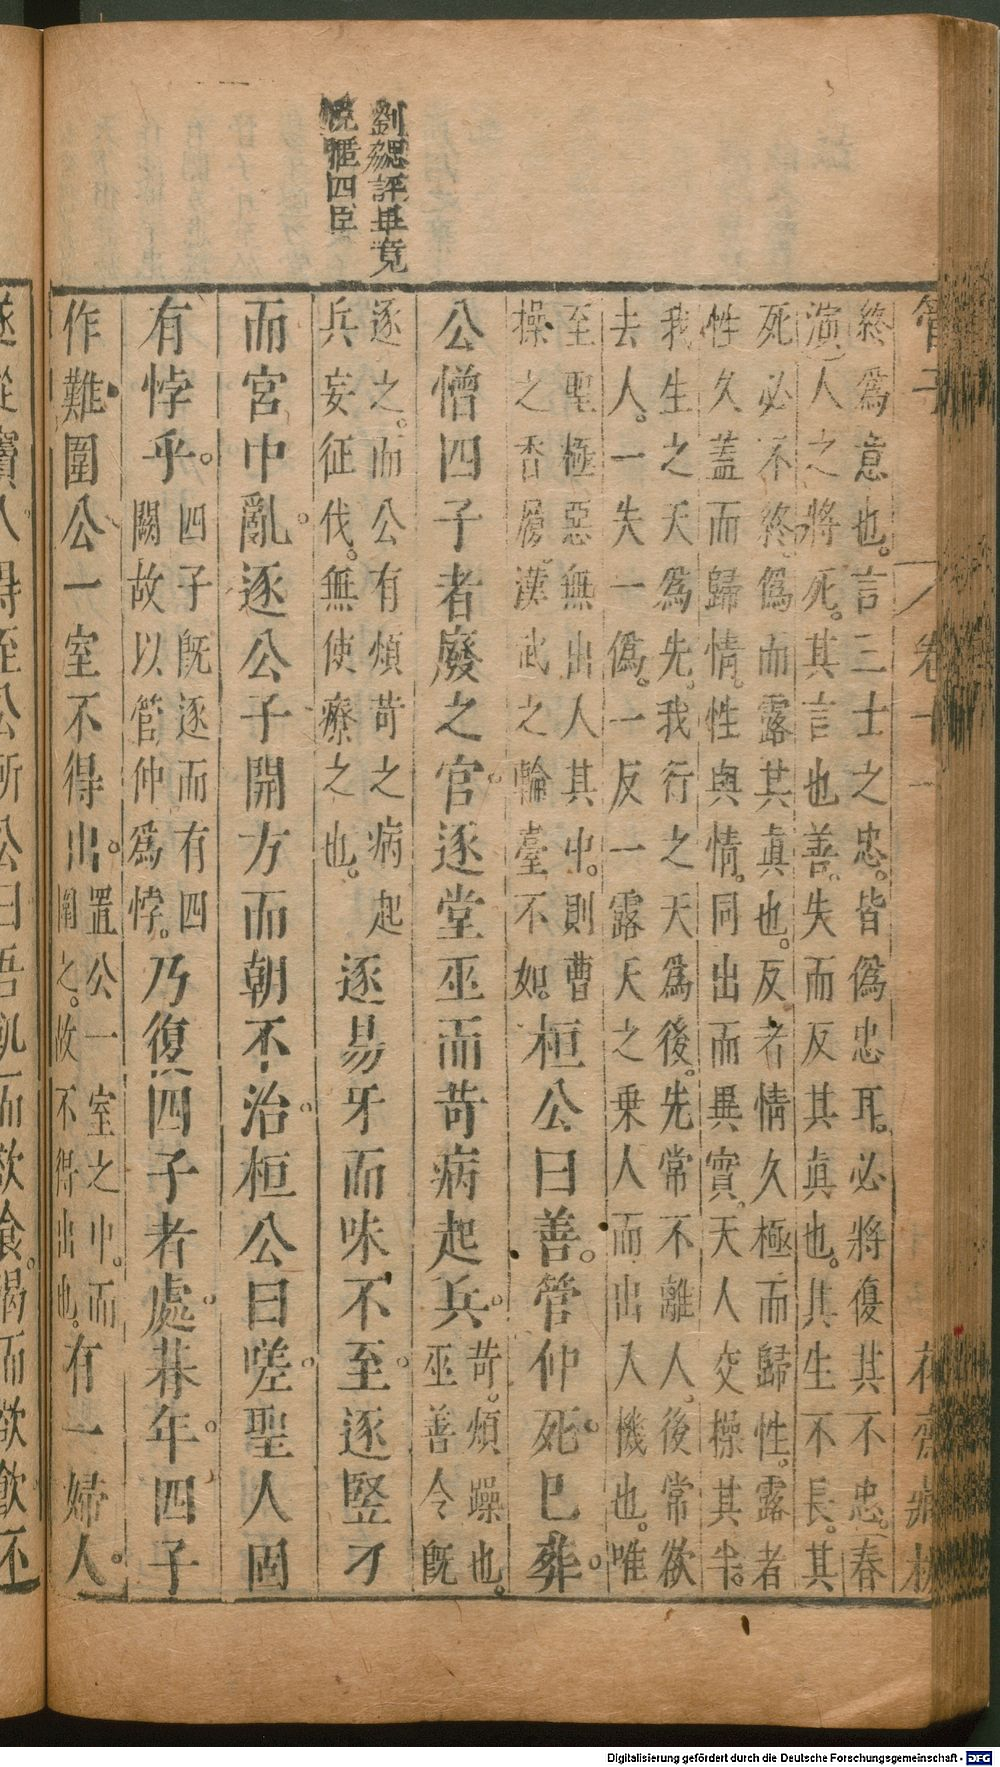 管子 卷十一 花齋藏板
劉勰評畢竟
俛循四臣
終爲意也。言三士之忠。皆僞忠耳。必將復其不忠。春
演人之將死。其言也善。失而反其眞也。其生不長。其
死必不終。爲而露其眞也。反者情久極而歸性。露者
性久蓋而歸情。性與情。同出而異實。天人交操其半。
我生之天爲先。我行之天爲後。先常不離人。後常欲
去人。一失一僞。一反一露天之乗人而出入機也。唯
至聖極惡無出人其中。則曹
操之香履。漢武之輪臺不如。桓公曰善。管仲死。巳葬。
公憎四子者廢之官。逐堂巫而苛病起兵。苛。煩躁也。
巫善令既
逐之。而公有煩苛之病起
兵妄征伐。無使療之也。逐易牙而味不至。逐竪刁
而宮中亂。逐公子開方而朝不治。桓公曰嗟。聖人固
有悖乎。四子既逐而有四
闕故以管仲爲悖。乃復四子者處。朞年。四子
作難圍公一室不得出。置公一室之中。而
圍之。故不得出也。有一婦人。
遂從竇入得至公所公曰吾飢而欲食。渴而欲飲不
Digitalisierung gefördert durch die Deutsche Forschungsgemeinschaft - DFG